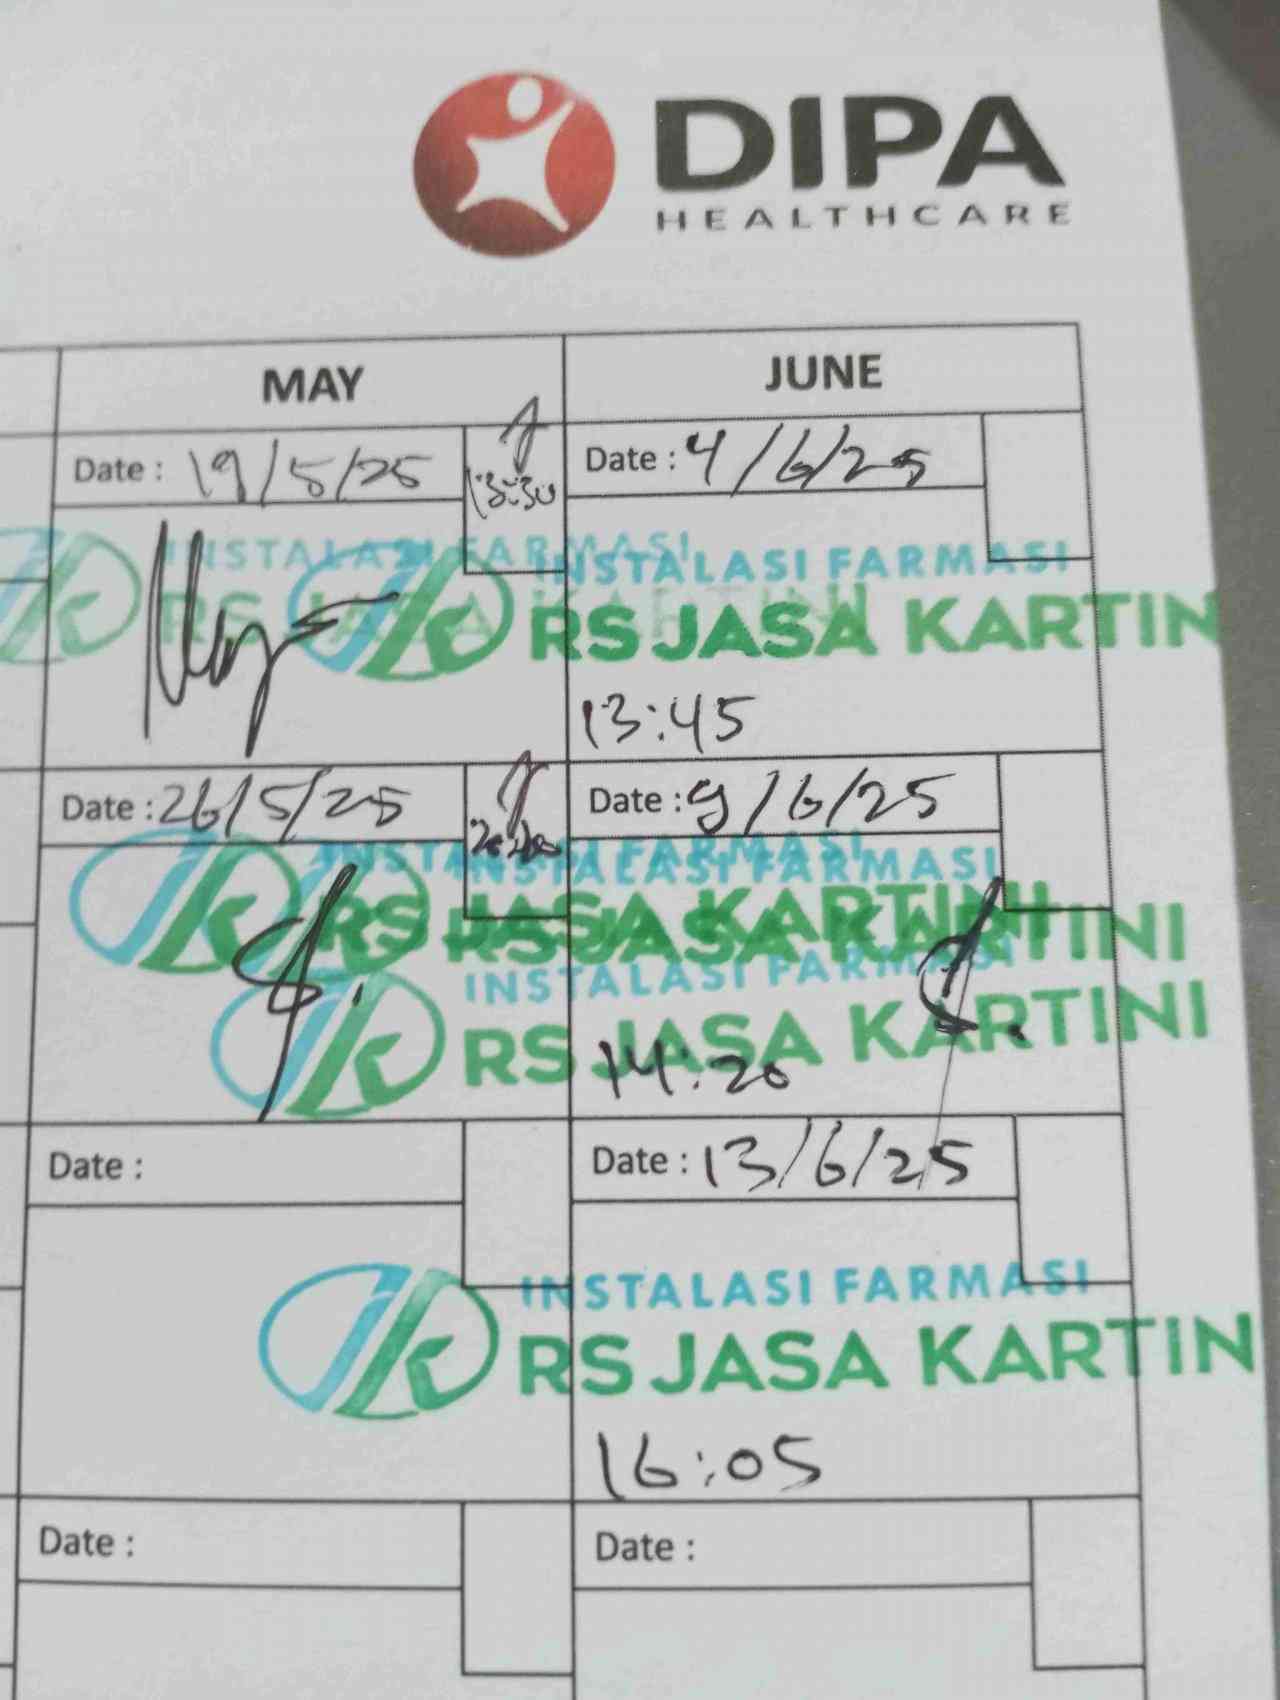 DIPA
HEALTHCARE
MAY
JUNE
Date : 19/5/25
13:30
Date : 4/6/25
INSTALASI FARMASI
RS JASA KARTINI
INSTALASI FARMASI
RS JASA KARTIN
13:45
Date : 26/5/25
Date : 9/6/25
INSTALASI FARMASI
RS JASA KARTINI
INSTALASI FARMASI
RS JASA KARTINI
INSTALASI FARMASI
RS JASA KARTINI
14:20
Date :
Date : 13/6/25
INSTALASI FARMASI
RS JASA KARTIN
16:05
Date :
Date :